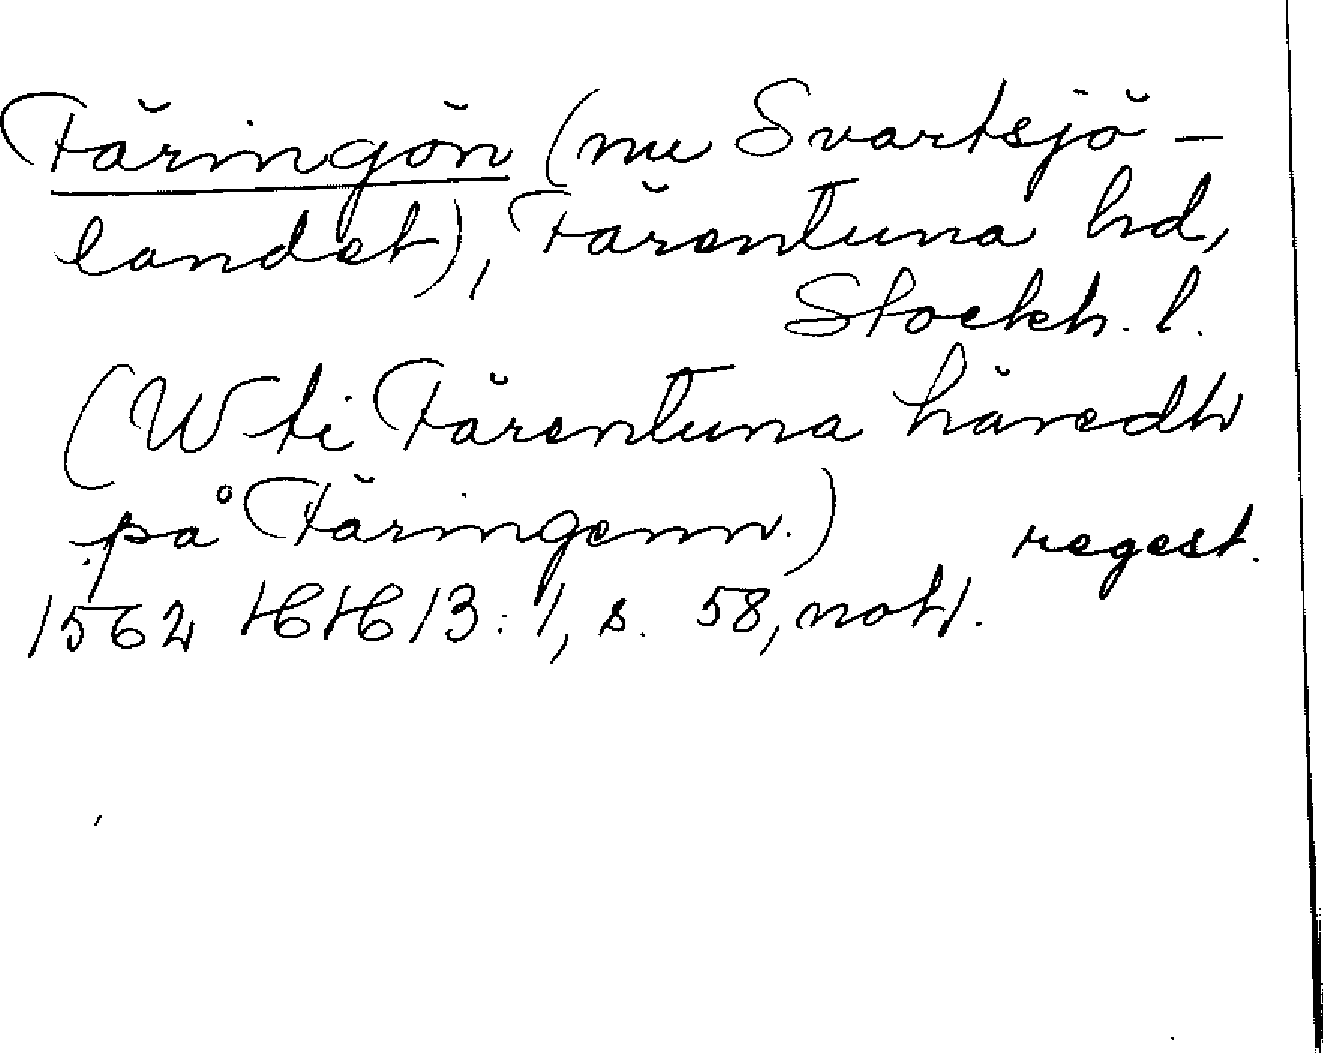 Färingön (nu Svartsjö-
landet), Färentuna hd,
Stockh. l.
(W ti Färentuna häredt
på Färingenn.) regest.
1562 HH 13:1, s. 58, not 1.